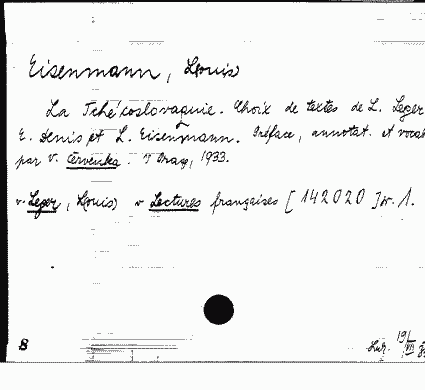 Eisenmann, L(ouis)
La Tchécoslovaquie. Choix de textes de L. Leger
E. Denis et L. Eisenmann. Préface, annotat. et vocab
par V. Červenka. Prag, 1933.
v. Leger, L(ouis) v Lectures françaises [142020] v. 1.
8